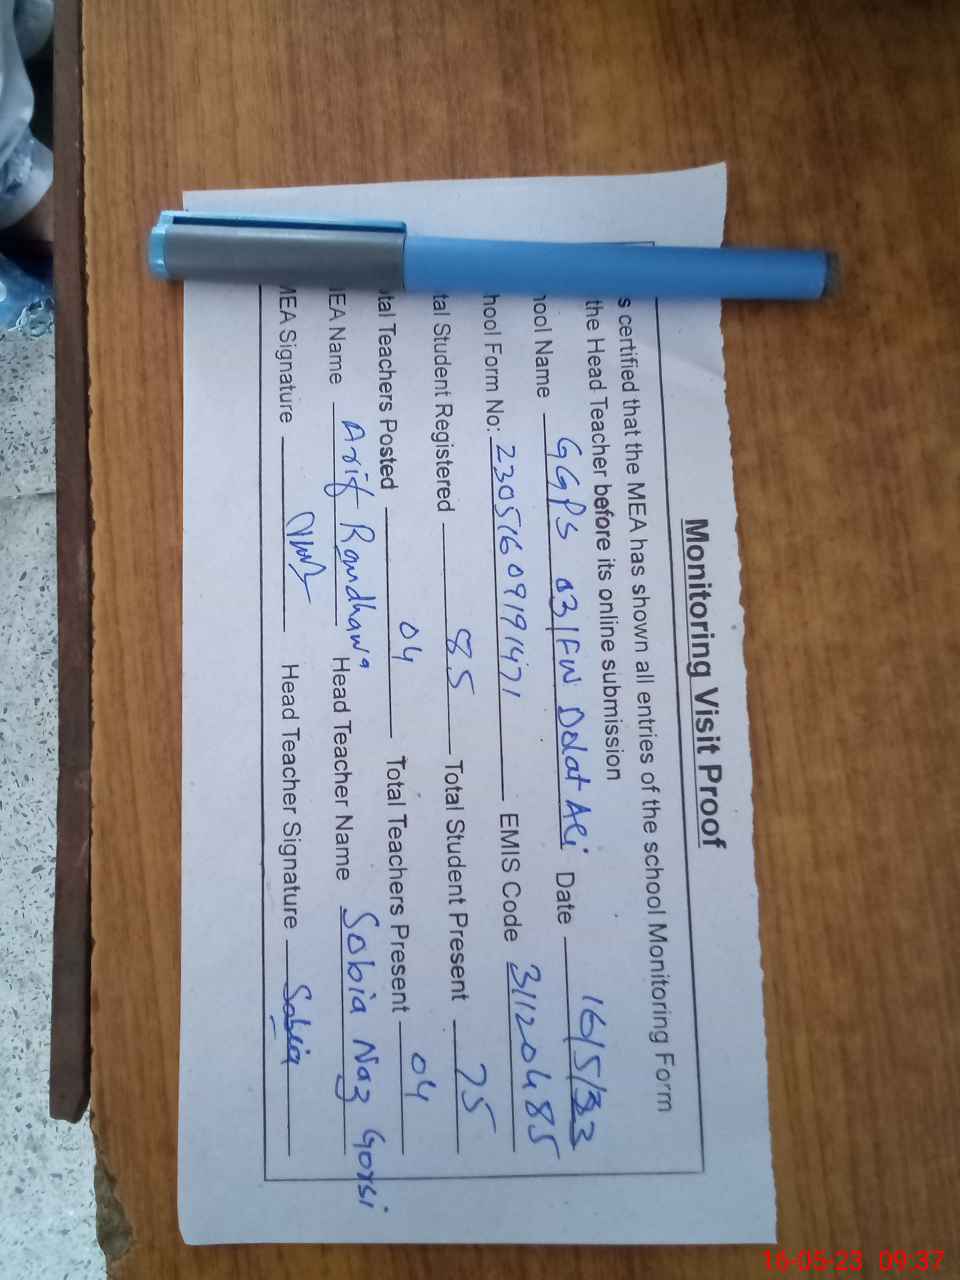 Monitoring Visit Proof
s certified that the MEA has shown all entries of the school Monitoring Form
the Head Teacher before its online submission
hool Name GGPS 031FW Dolat Ali Date 16/5/23
hool Form No: 23051609191471 EMIS Code 31120485
tal Student Registered 85 Total Student Present 75
tal Teachers Posted 04 Total Teachers Present 04
EA Name Arif Randhawa Head Teacher Name Sobia Naz Gorsi
MEA Signature Head Teacher Signature Sobia
16-05-23 09:37